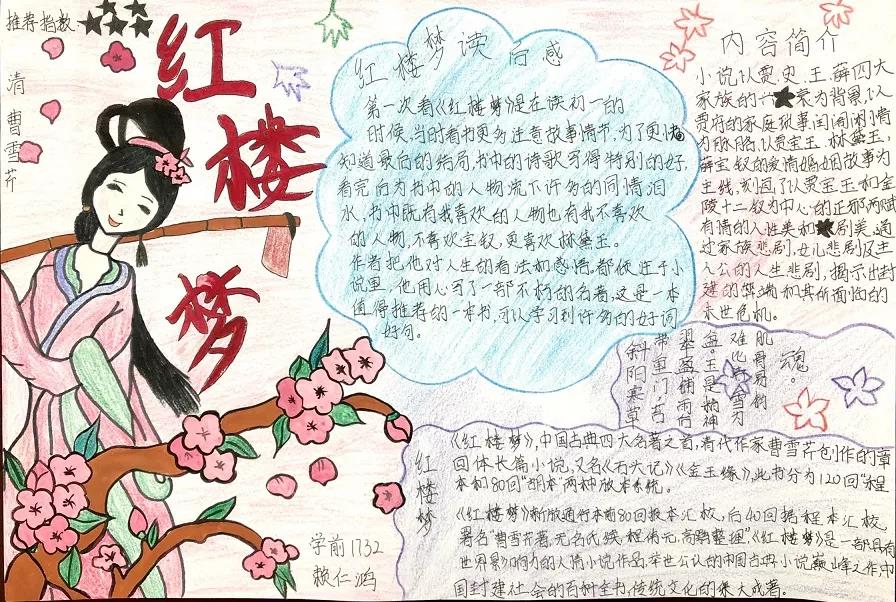 推荐指数
清 曹雪芹
红楼梦
红楼梦读后感
第一次看《红楼梦》是在读初一的
时候,当时看书更多注意故事情节,为了更快
知道最后的结局,书中的诗歌写得特别的好,
看完后为书中的人物流下许多的同情泪
水,书中既有我喜欢的人物也有我不喜欢
的人物,不喜欢宝钗,更喜欢林黛玉。
作者把他对人生的看法和感情,都依注于小
说里,他用心写了一部不朽的名著,这是一本
值得推荐的一本书,可以学习到许多的好词
好句。
内容简介
小说以贾、史、王、薛四大
家族的兴衰为背景,以
贾府的家庭琐事、闺阁闲情
为脉络,以贾宝玉、林黛玉、
薛宝钗的爱情婚姻故事为
主线,刻画了以贾宝玉和金
陵十二钗为中心的正邪两赋
有情的人性美和悲剧美,通
过家族悲剧,女儿悲剧及主
人公的人生悲剧,揭示出封
建的弊端和其所面临的
末世危机。
斜阳寒草
带重门,苔
翠盈铺雨后
盆。玉是精神
难比洁,雪为
肌骨易销
魂。
红楼梦
《红楼梦》,中国古典四大名著之首,清代作家曹雪芹创作的章
回体长篇小说,又名《石头记》《金玉缘》,此书分为120回“程
本和80回“脂本”两种版本系统。
《红楼梦》新版通行本前80回据本汇校,后40回据程本汇校,
署名“曹雪芹著,无名氏续,程伟元、高鹗整理”《红楼梦》是一部具有
世界影响力的人情小说作品,举世公认的中国古典小说巅峰之作,中
国封建社会的百科全书,传统文化的集大成者。
学前1732
赖仁鸿